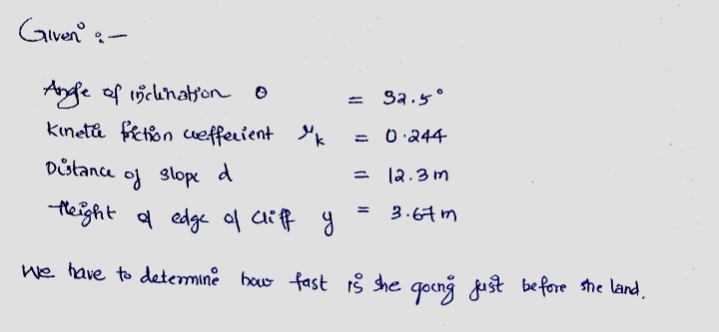 Given :-
Angle of inclination θ = 32.5°
Kinetic friction coefficient μk = 0.244
Distance of slope d = 12.3 m
Height of edge of cliff y = 3.67 m
We have to determine how fast is she going just before she land.